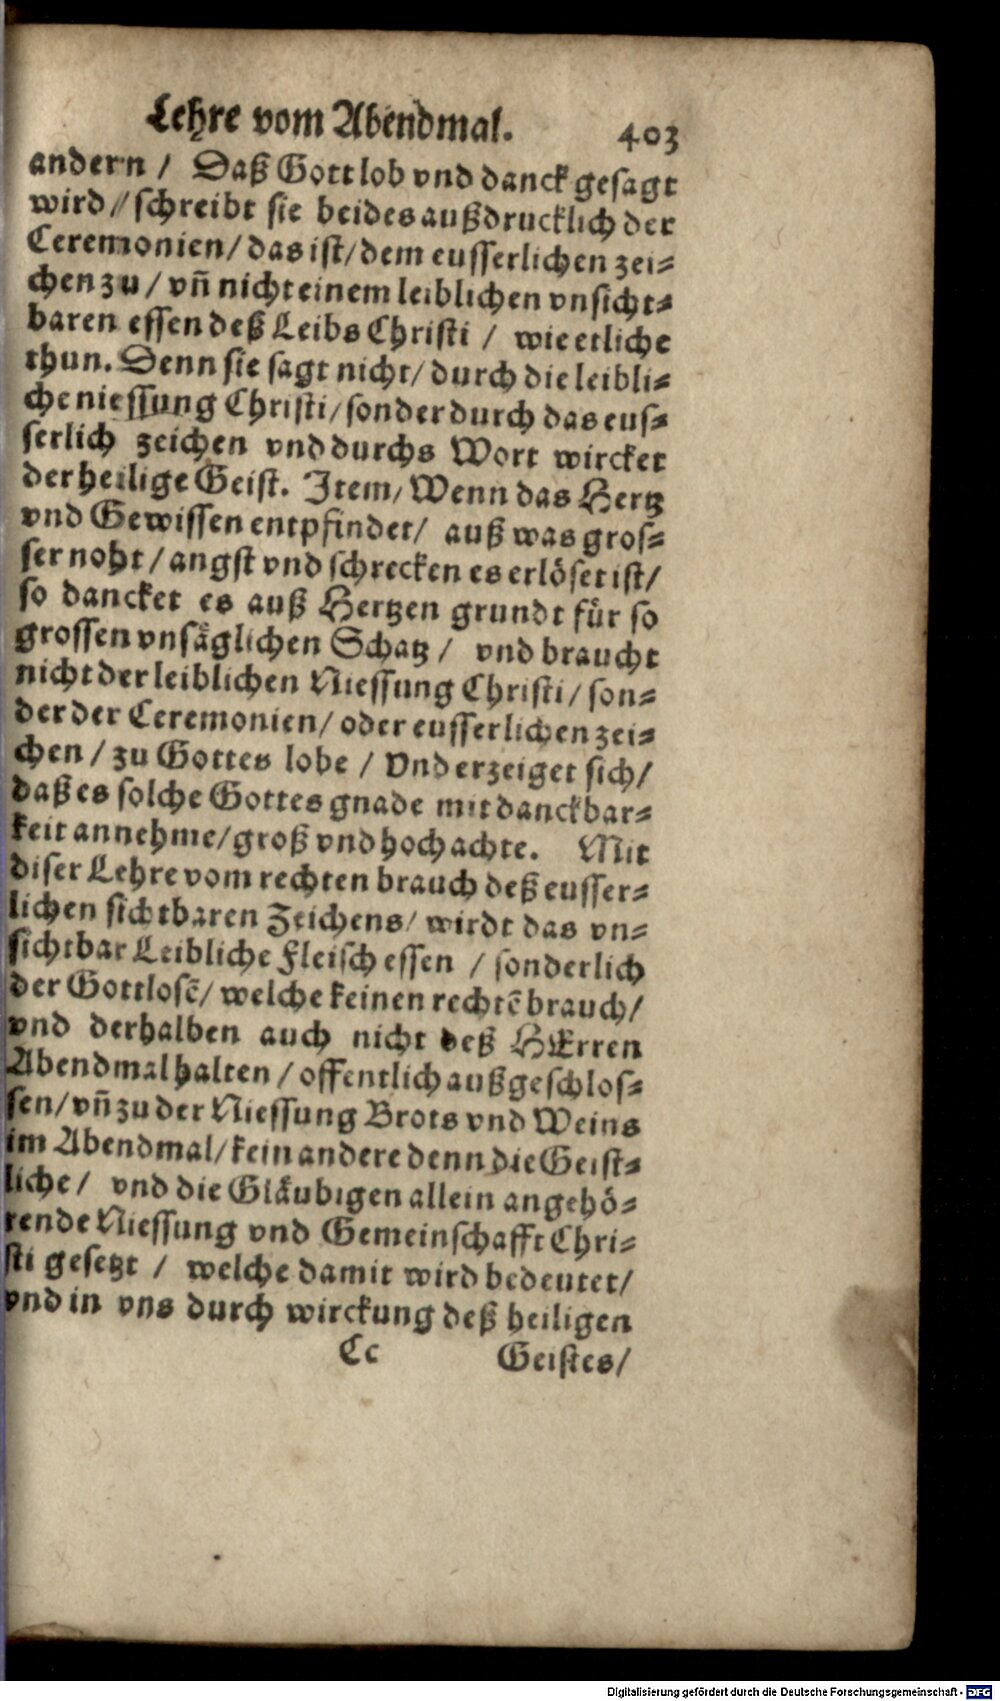 Lehre vom Abendmal. 403
andern / Daß Gott lob vnd danck gesagt
wird / schreibt sie beides außdrucklich der
Ceremonien / das ist / dem eusserlichen zei⸗
chen zu / vn̄ nicht einem leiblichen vnsicht⸗
baren essen deß Leibs Christi / wie etliche
thun. Denn sie sagt nicht / durch die leibli⸗
che niessung Christi / sonder durch das eus⸗
serlich zeichen vnd durchs Wort wircket
der heilige Geist. Item / Wenn das Hertz
vnd Gewissen entpfindet / auß was gros⸗
ser noht / angst vnd schrecken es erlöset ist /
so dancket es auß Hertzen grundt für so
grossen vnsäglichen Schatz / vnd braucht
nicht der leiblichen Niessung Christi / son⸗
der der Ceremonien / oder eusserlichen zei⸗
chen / zu Gottes lobe / Vnd erzeiget sich /
daß es solche Gottes gnade mit danckbar⸗
keit annehme / groß vnd hoch achte. Mit
diser Lehre vom rechten brauch deß eusser⸗
lichen sichtbaren Zeichens / wirdt das vn⸗
sichtbar Leibliche Fleisch essen / sonderlich
der Gottlosē / welche keinen rechtē brauch /
vnd derhalben auch nicht deß HErren
Abendmal halten / offentlich außgeschlos⸗
sen / vn̄ zu der Niessung Brots vnd Weins
im Abendmal / kein andere denn die Geist⸗
liche / vnd die Gläubigen allein angehö⸗
rende Niessung vnd Gemeinschafft Chri⸗
sti gesetzt / welche damit wird bedeutet /
vnd in vns durch wirckung deß heiligen
Cc Geistes /
Digitalisierung gefördert durch die Deutsche Forschungsgemeinschaft - DFG